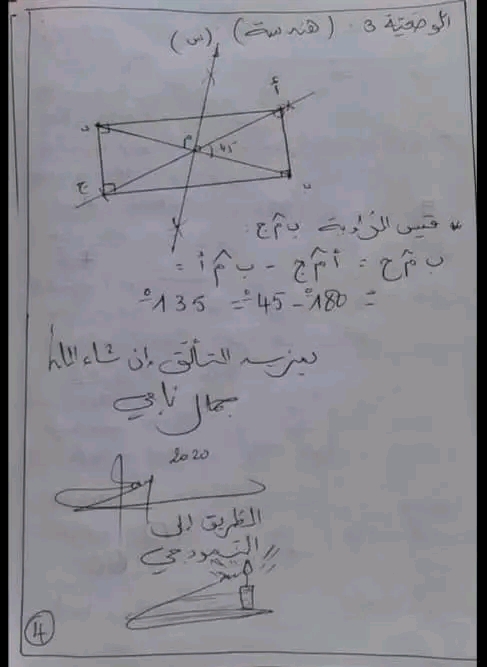 الوضعية 3 : (هندسة)
(س)
أ
د
م
45
ج
ب
* قيس الزاوية بم̂ج :
بم̂ج = أم̂ج - بم̂أ =
= 180° - 45° = 135°
بمزيد التألق إن شاء الله
جمال ناجي
2020
الطريق إلى
النموذجي
4